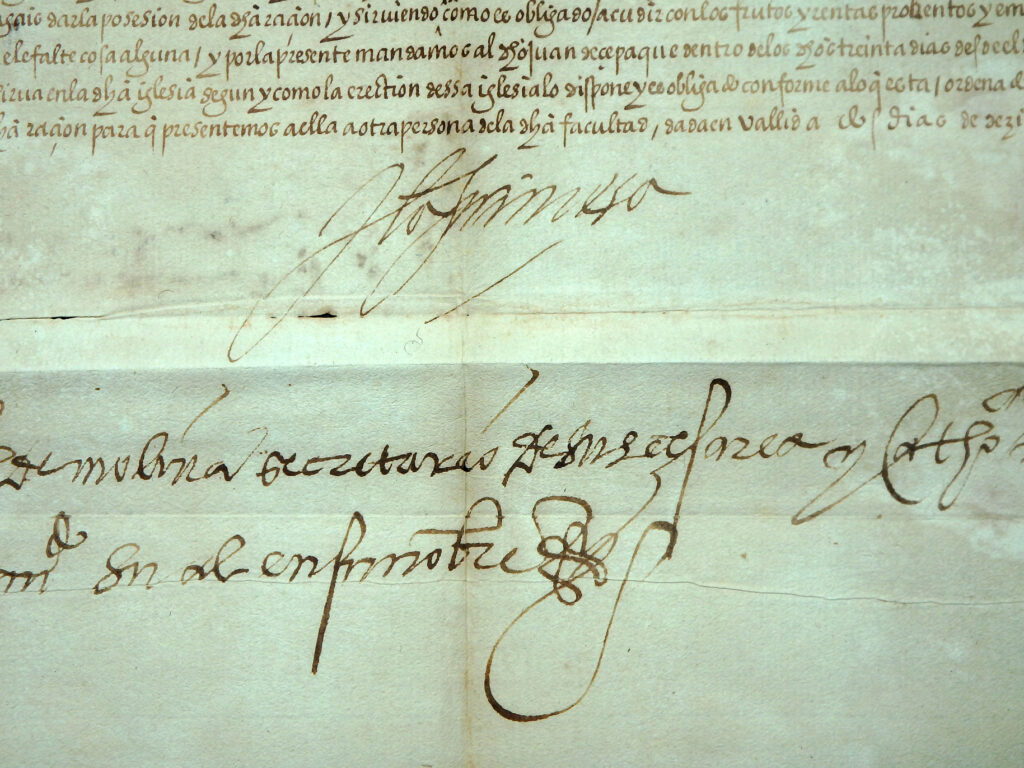 agais dar la posesion de la dh̃a raçion / y sirviendo como es obligado / acudir con los frutos y rentas probentos y em
e le falte cosa alguna / y por la presente mandamos al dh̃o juan de çepa que dentro de los dh̃os treinta dias desde el
sirva en la dh̃a iglesia segun y como la erection dessa iglesia lo dispone y es obligado conforme a lo q̃ esta / ordena
h̃a raçion para q̃ presentemos a ella a otra persona de la dh̃a facultad, dada en vallid a dias de dezi
de molina secretario de su cesarea y Cath
su al en su nombre